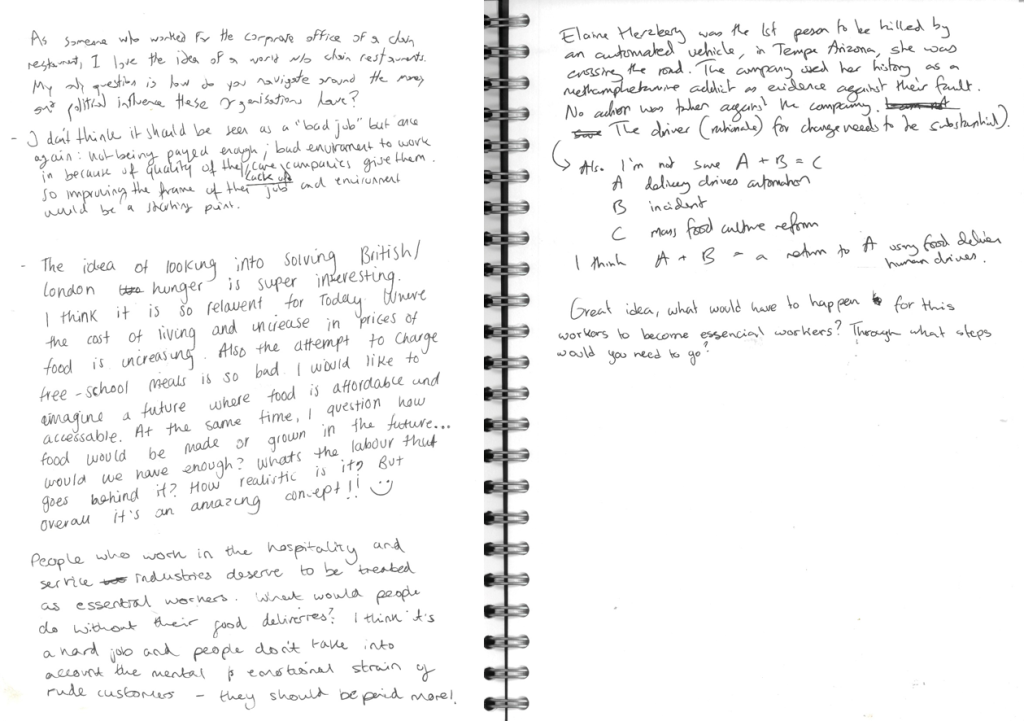 As someone who worked for the corporate office of a chain
restaurant, I love the idea of a world w/o chain restaurants.
My only question is how do you navigate around the money
and political influence these organisations have?
- I don't think it should be seen as a "bad job" but once
again: not being payed enough; bad enviroment to work
in because of quality of the care companies give them.
lack of
So improving the frame of their job and enviroment
would be a starting point.
- The idea of looking into solving British/
London hunger is super interesting.
I think it is so relavent for Today where
the cost of living and increase in prices of
food is increasing. Also the attempt to charge
free-school meals is so bad. I would like to
imagine a future where food is affordable and
accessable. At the same time, I question how
food would be made or grown in the future...
would we have enough? whats the labour that
goes behind it? How realistic is it? But
overall it's an amazing concept!!
People who work in the hospitality and
service industries deserve to be treated
as essential workers. What would people
do without their food deliveries? I think it's
a hard job and people don't take into
account the mental & emotional strain of
rude customers – they should be paid more!
Elaine Herzberg was the 1st person to be killed by
an automated vehicle, in Tempe Arizona, she was
crossing the road. The company used her history as a
methamphetamine addict as evidence against their fault.
No action was taken against the company.
The driver (rationale) for change needs to be substantial).
Also I'm not sure A + B = C
A delivery drives automation
B incident
C mass food culture reform
I think A + B = a return to A using food deliver
human drives.
Great idea, what would have to happen for this
workers to become essencial workers? Through what steps
would you need to go?